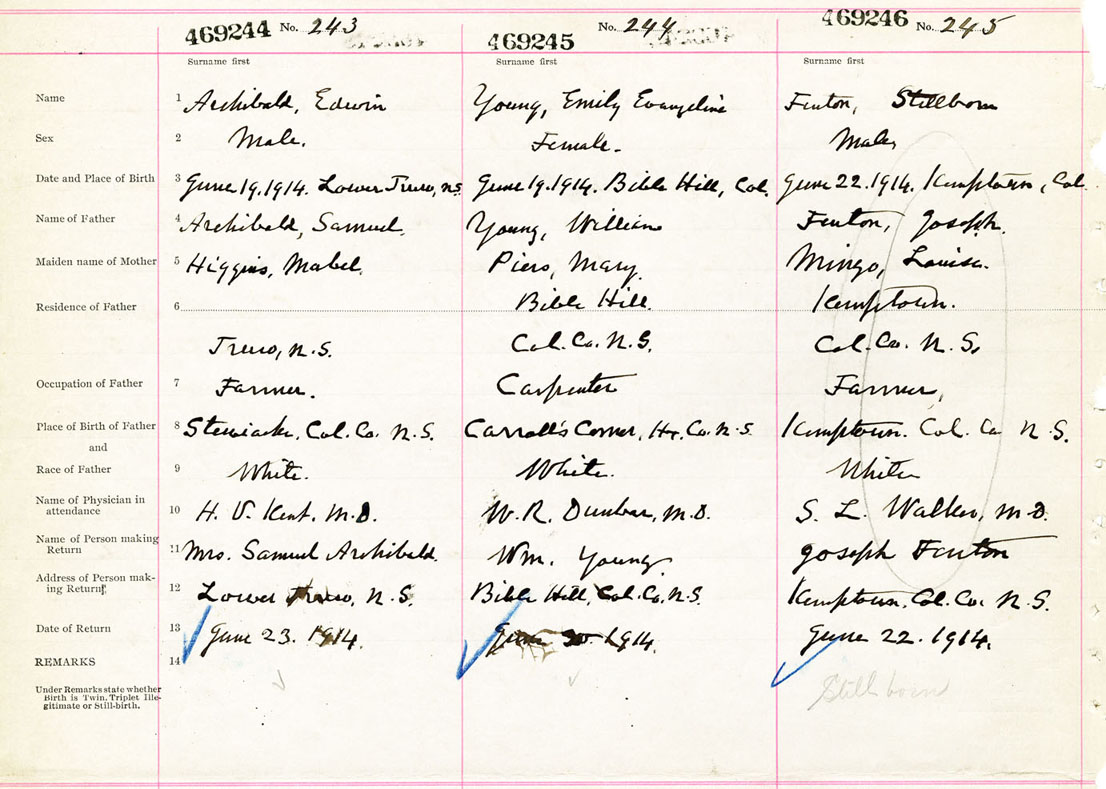 469244 No. 243 469245 No. 244 469246 No. 245
Surname first Surname first Surname first
Name 1 Archibald, Edwin Young, Emily Evangeline Fenton, Stillborn
Sex 2 Male. Female. Male
Date and Place of Birth 3 June 19.1914. Lower Truro, N.S. June 19.1914. Bible Hill, Col. June 22.1914. Kemptown, Col.
Name of Father 4 Archibald, Samuel. Young, William Fenton, Joseph.
Maiden name of Mother 5 Higgins, Mabel. Piers, Mary. Mingo, Louisa.
Residence of Father 6 Bible Hill. Kemptown.
Truro, N.S. Col. Co. N.S. Col. Co. N.S.
Occupation of Father 7 Farmer. Carpenter Farmer,
Place of Birth of Father 8 Stewiacke, Col. Co. N.S. Carroll's Corner, Hx. Co. N.S. Kemptown. Col. Co N.S.
and
Race of Father 9 White. White. White
Name of Physician in
attendance 10 H. V. Kent. M.D. W. R. Dunbar, M.D. S. L. Walker, M.D.
Name of Person making
Return 11 Mrs. Samuel Archibald. Wm. Young. Joseph Fenton
Address of Person mak-
ing Return 12 Lower Truro, N.S. Bible Hill, Col. Co. N.S. Kemptown, Col. Co. N.S.
Date of Return 13 June 23. 1914. June 1914. June 22. 1914.
REMARKS 14
Stillborn
Under Remarks state whether
Birth is Twin, Triplet Ille-
gitimate or Still-birth.